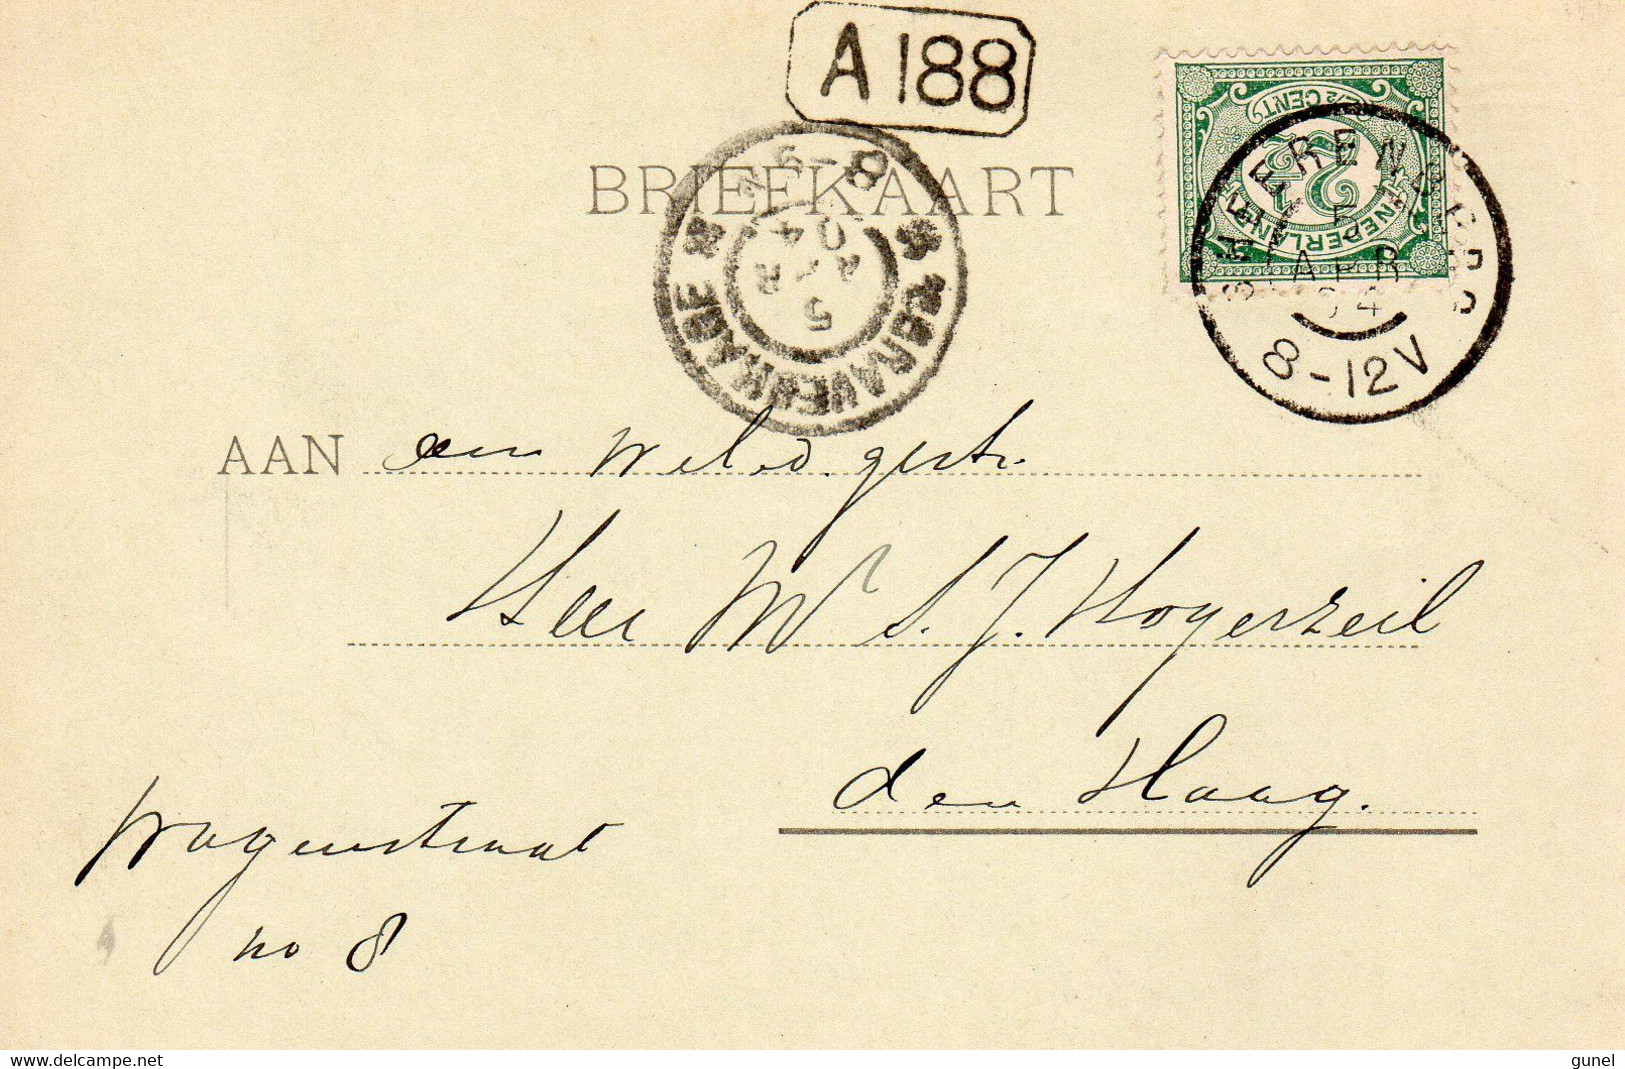 A 188
2½ CENT
2½
NEDERLAND
'S HEERENBERG
5 APR 04
8-12V
BRIEFKAART
'S GRAVENHAGE
5 APR 04
AAN den Weled. gestr.
Heer Mr S. J. Hogerzeil
den Haag.
Wagenstraat
no 8
www.delcampe.net
gunel